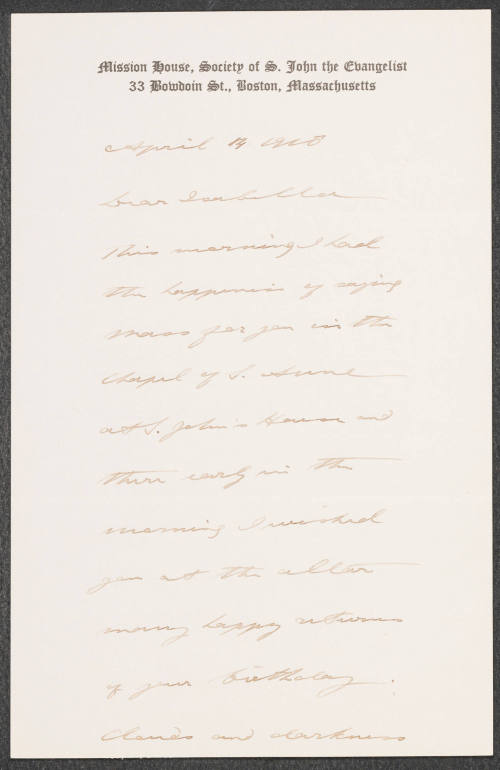 Mission House, Society of S. John the Evangelist
33 Bowdoin St., Boston, Massachusetts
April 14 1918
Dear Isabella
This morning I had
the happiness of saying
Mass for you in the
Chapel of S. Anne
at S. John's House and
there early in the
morning I wished
you at the altar
many happy returns
of your birthday.
Clouds and darkness